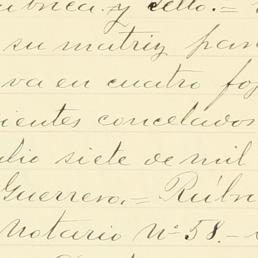 ubrica. y sello. =
su matriz para
va en cuatro foj
ientes cancelados
ulio siete de mil
Guerrero. = Rúbr
Notario Nº 58. -